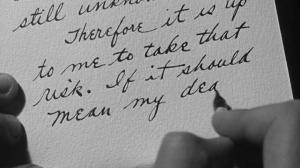 still unknown
Therefore it is up
to me to take that
risk. If it should
mean my dea